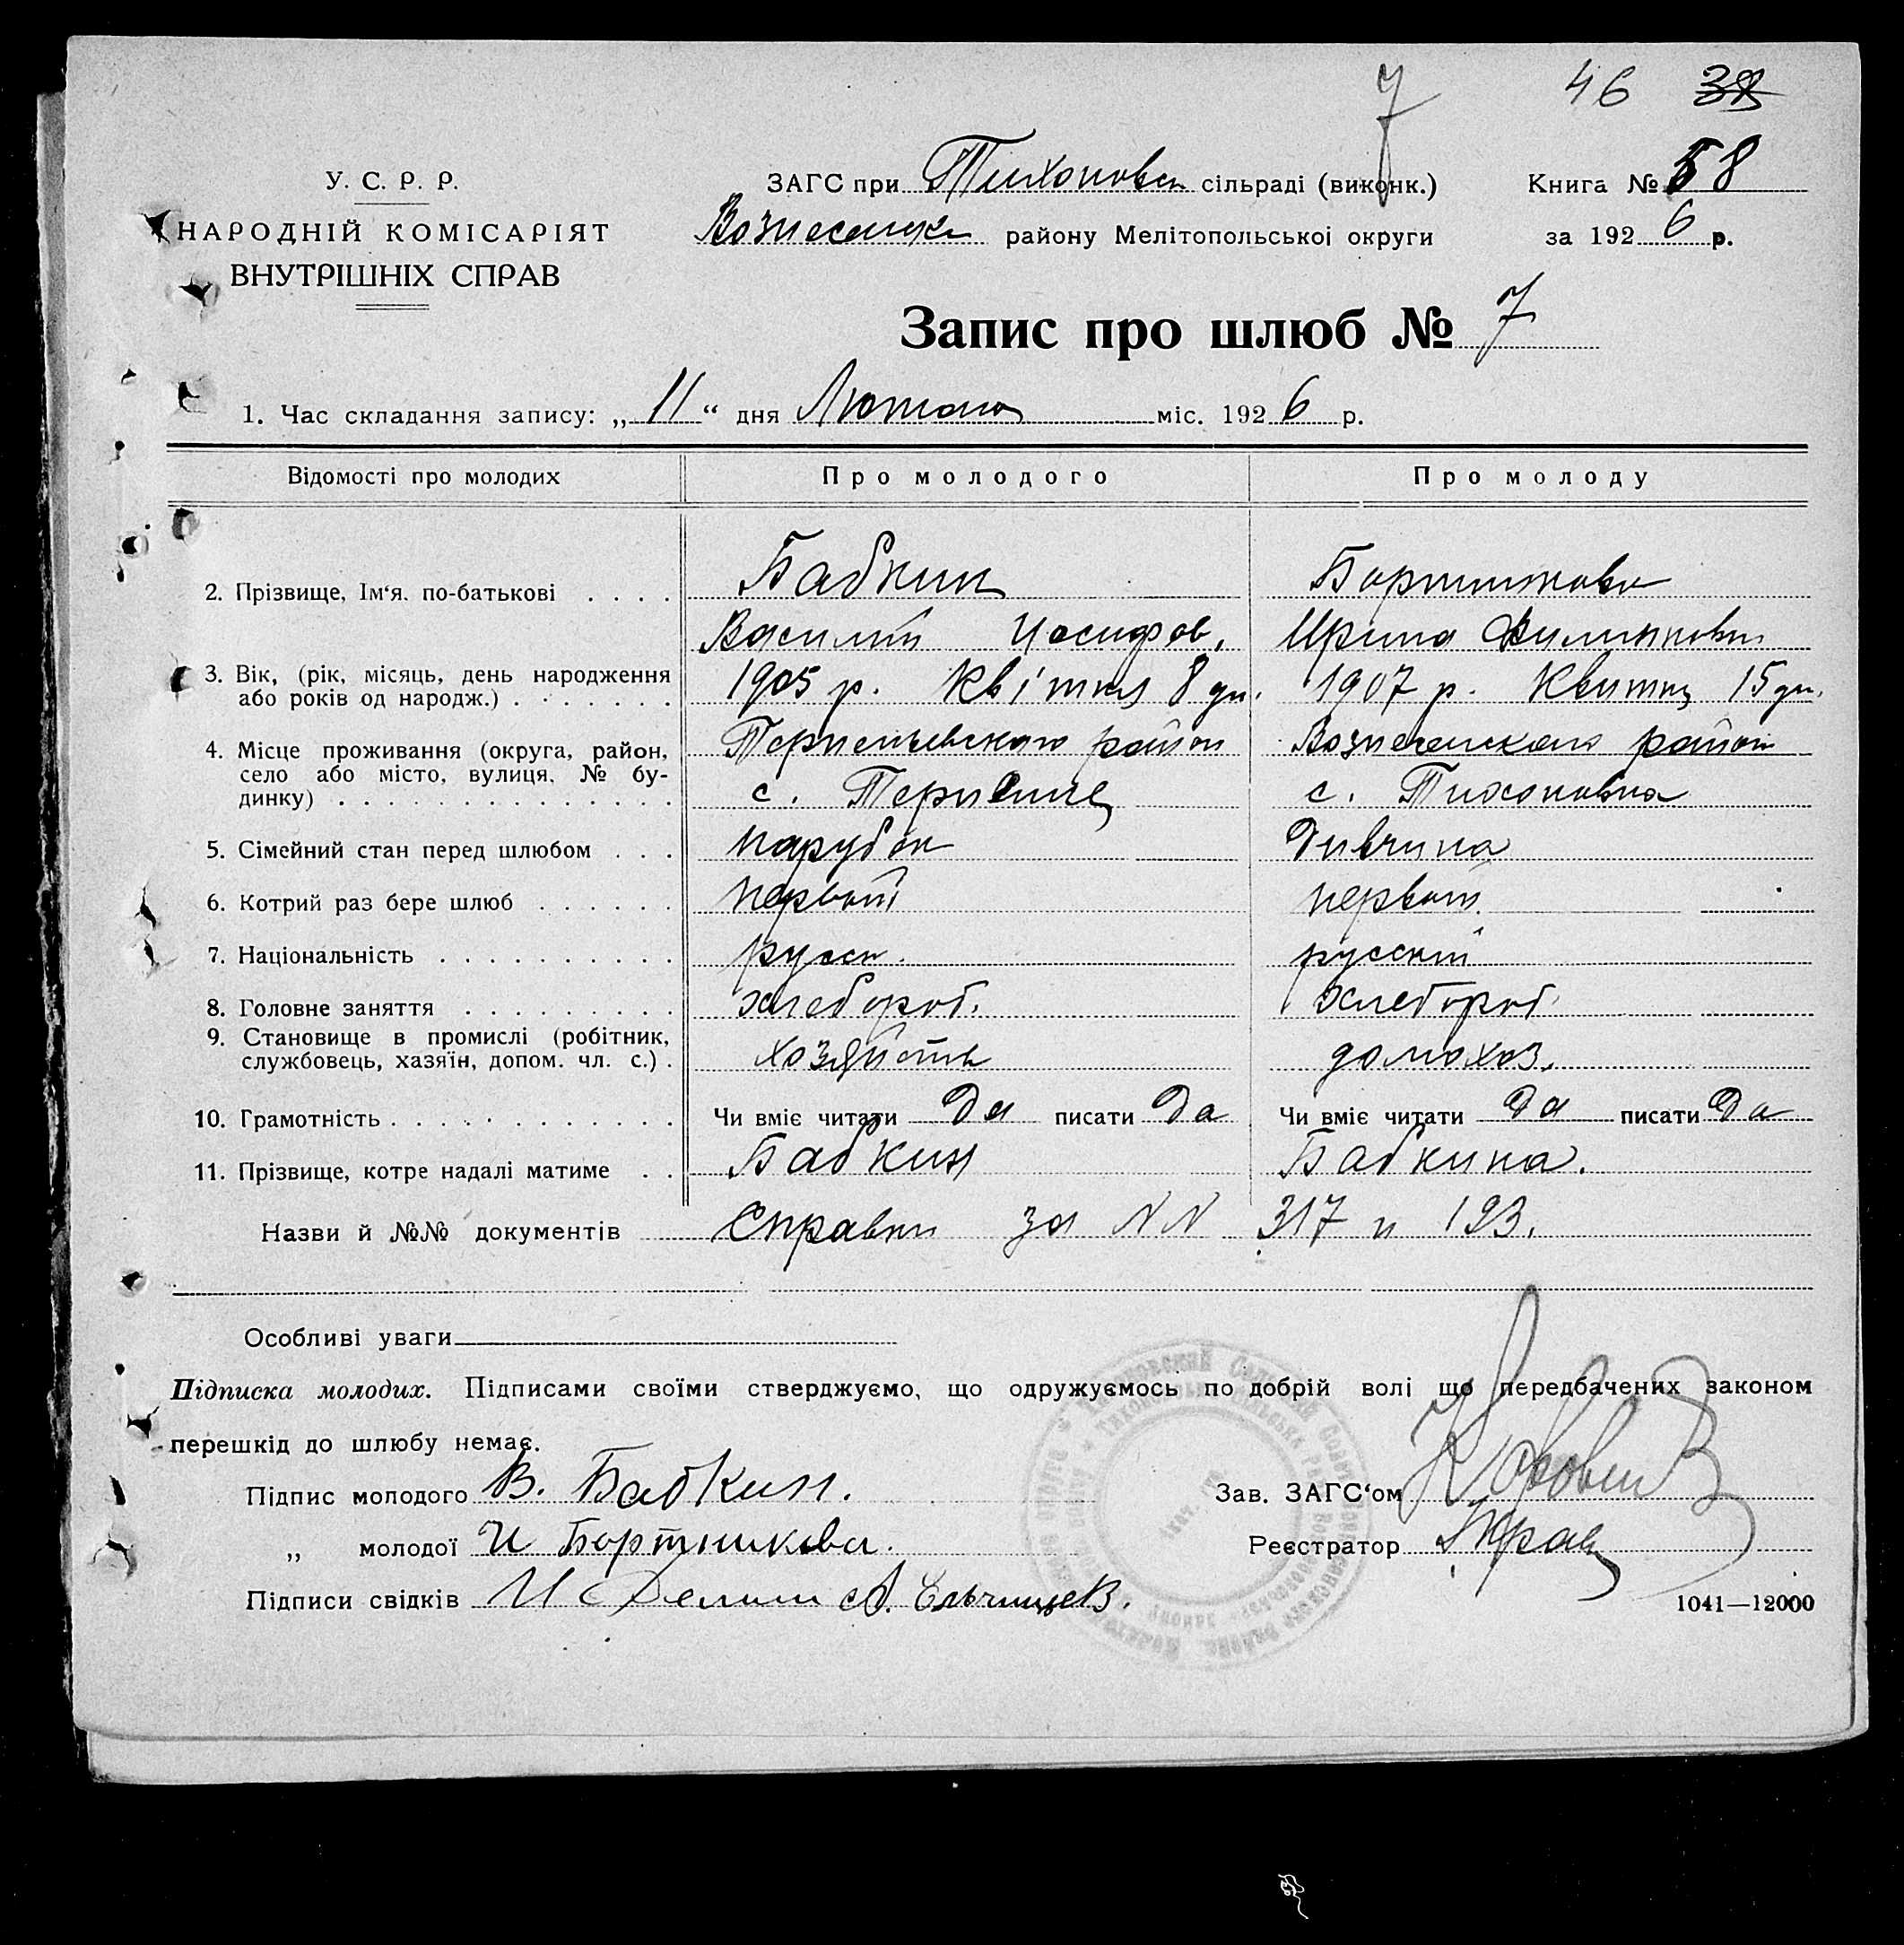 7 46 38
У. С. Р. Р.
НАРОДНІЙ КОМІСАРІЯТ
ВНУТРІШНІХ СПРАВ
ЗАГС при Тихоновск сільраді (виконк.) Книга № 58
Вознесенск району Мелітопольської округи за 1926 р.
Запис про шлюб № 7
1. Час складання запису: „11“ дня Лютаго міс. 1926 р.
Відомості про молодих Про молодого Про молоду
2. Прізвище, Ім‘я. по-батькові . . . . Бабкин Бортникова
Василий Иосифов. Ирина Филипповн
3. Вік, (рік, місяць, день народження або років од народж.) . . . . . . . 1905 р. Квітня 8 дн. 1907 р. Квитня 15 дн.
4. Місце проживання (округа, район, село або місто, вулиця, № будинку) . . . . . . . . . . . . . . Терпеньевского район Вознесенского район
с. Терпение с. Тихоновка
5. Сімейний стан перед шлюбом . . . парубок Дивчина
6. Котрий раз бере шлюб . . . . . . первый первый
7. Національність . . . . . . . . . . русск. русский
8. Головне заняття . . . . . . . . . хлебороб. хлебороб
9. Становище в промислі (робітник, службовець, хазяїн, допом. чл. с.) . хозяйств домохоз.
10. Грамотність . . . . . . . . . . . . Чи вміє читати Да писати Да Чи вміє читати Да писати Да
11. Прізвище, котре надалі матиме . . Бабкин Бабкина.
Назви й №№ документів Справки за NN 317 и 193.
Особливі уваги
Підписка молодих. Підписами своїми стверджуємо, що одружуємось по добрій волі що передбачених законом
перешкід до шлюбу немає.
Підпис молодого В. Бабкин. Зав. ЗАГС‘ом
„ молодої И Бортникова. Реєстратор
Підписи свідків И А. Ельчищев.
1041—12000